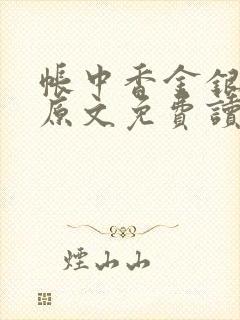 帳中香金銀
原文免費讀
煙山山